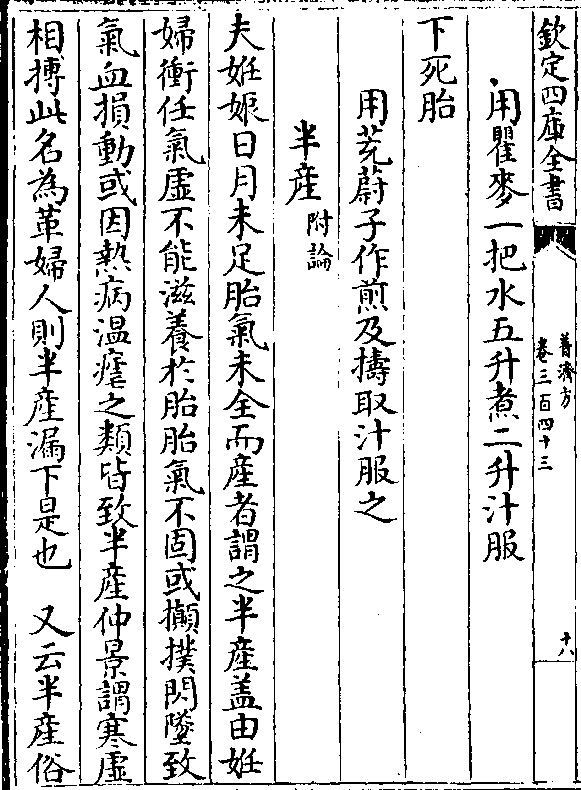 欽定四庫全書
普濟方
卷三百四十三
十八
用瞿麥一把水五升煮二升汁服
下死胎
用茺蔚子作煎及擣取汁服之
半產附論
夫姙娠日月未足胎氣未全而產者謂之半產盖由姙
婦衝任氣虛不能滋養於胎胎氣不固或攧撲閃墜致
氣血損動或因熱病温瘧之類皆致半產仲景謂寒虛
相摶此名為革婦人則半產漏下是也　又云半產俗